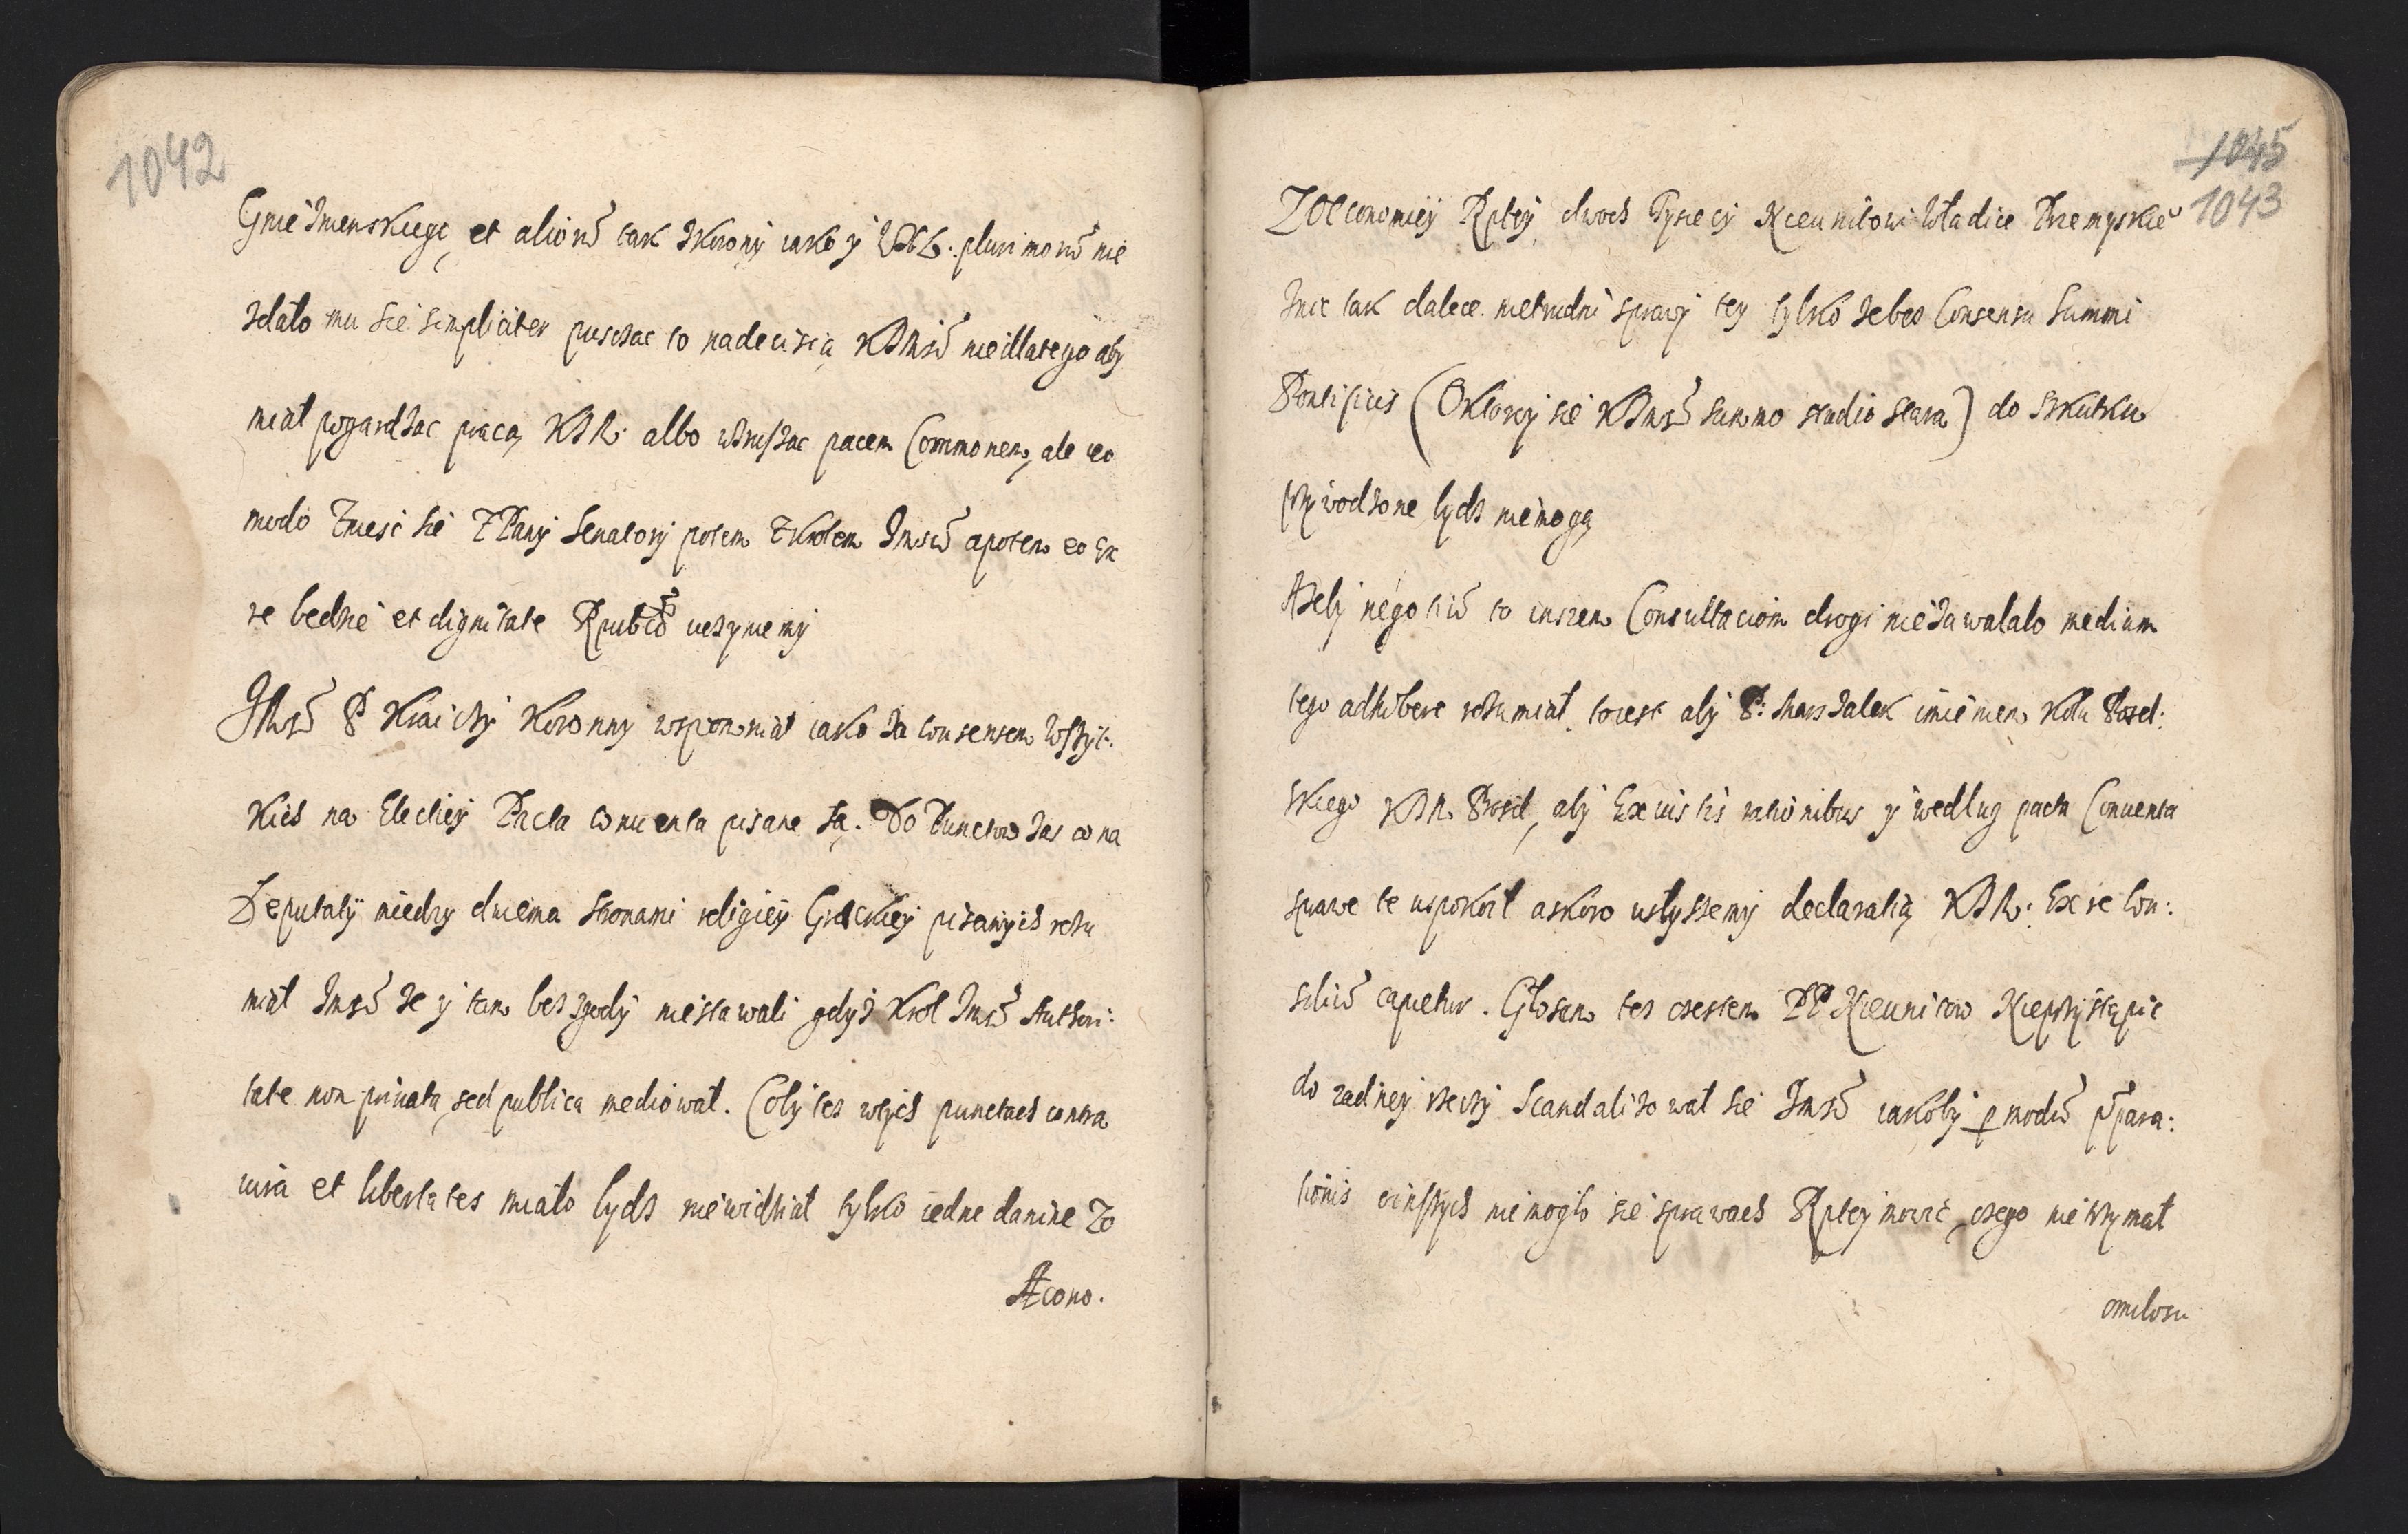 1042
Gnieznienskiego, et aliorũ tak zkorony iako y WXL. plurimorũ nie
zdało mu sie simpliciter puszczac to nadecisią KJMści niedlatego aby
miał pogardzac pracą KJM. albo wzruszac pacem Commonem, ale eo
modo zniesc sie z Pany Senatory potem zkrolem Jmscią apotem co Ex
re bedzie et dignitate Rpubcæ uczyniemy
JMść P Kraiczy Koronny wspomniał iako za consensem wszyt:
kich na Electiey Pacta conuenta pisane są. Do Punctow zas co na
Deputaty miedzy dwiema stronami religiey Græckiey pisanych rozu
miał Jmść ze y tam bes zgody niestawali gdyz Krol Jmść Authori:
tate non priuata, sed publica mediował. Coby tez wtych punctach contra
iura et libertates miało bydz niewidział tylko iedne danine Zo
Æcono.
1045
1043
ZOEconomiey Rptey dwoch Tysiecy Nieunitowi Władice Przemyskiẽ
Inic tak dalece nietrudni sprawy tey tylko zebes Consensu Summi
Pontificis (Oktory sie KJmść summo studio stara) do skutku
przywodzone bydz niemogą
Azeby negotiũ to inszem Consultaciom drogi niezawalało medium
tego adhibere rozumiał, toiest aby P: Marszalek imieniem Koła Posel:
skiego KJM. Prosił, aby Ex iustis rationibus y według pacta Conuenta
sprawe te uspokoił askoro usłyszemy declaratią KJM: Ex re Con:
siliũ capietur. Głosem tez czestem PP Nieunitow Nieprzystąpic
do zadney rzeczy Scandalizował sie Jmść iakoby p modũ p̃para:
tionis oinszych niemogło sie sprawach Rptey mowic, czego nietrzymał
omilosci